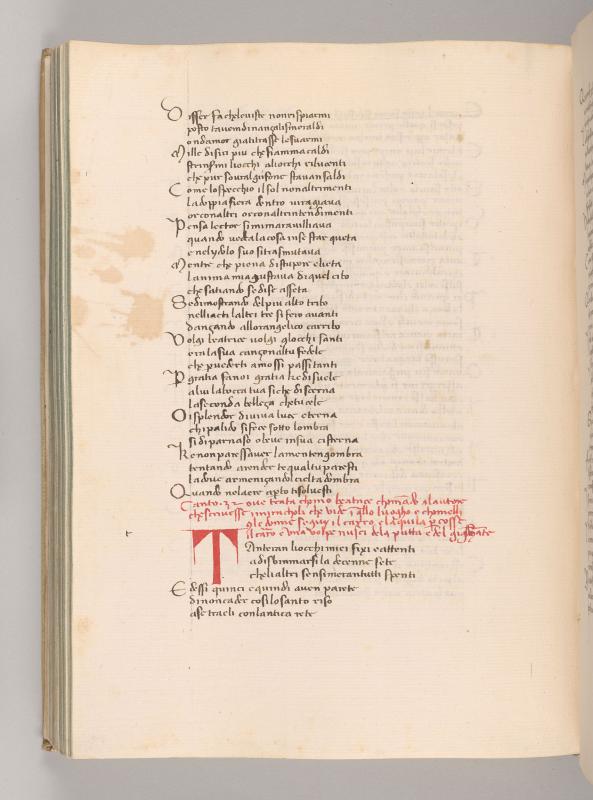 Disser fa che leviste non rispiarmi
posto tavem dinanzalismeraldi
ondamor gia titrasse lesuarmi
Mille disiri piu che fiamma caldi
strinsimi liocchi aliocchi rilucenti
che pur sovralgrifone stavan saldi
Come lospecchio il sol non altrimenti
la doppia fiera dentro vi ragiava
or con altri or con altri intendimenti
Pensa lector si mi maravilliava
quando vedea la cosa inse star queta
e nelydolo suo si trasmutava
Mentre che piena distupore e lieta
lanima mia gustava di quel cibo
che satiando se dise asseta
Se dimostrando del piu alto tribo
nelli acti laltri tre si fero avanti
danzando allor angelico carribo
Volgi beatrice volgi glocchi santi
era la sua canzon altu fedele
che pvederti a mossi passi tanti
P gratia fa noi gratia ke disvele
a lui la bocca tua si che discerna
la seconda belleza che tu cele
O isplendor di viva luce eterna
chi palido si fece sotto lombra
si di parnaso o beve in sua cisterna
Ke non paressaver la mente ngombra
tentando a render te qual tu paresti
la dove armenizando il ciel tadombra
Quando nelaere apto ti solvesti
Canto .32. ove trata chomo beatrice chomado al autore
che scrivesse i miracholi che vide i qllo luogho e chome li
gle donne seguir il carro e laquila p cosse
il caro e una volpe nusci dela putta e del gigante
t
Tanteran liocchi miei fixi e attenti
a disbramarsi la decenne sete
che li altri sensi meran tutti spenti
Edessi quinci e quindi avien parete
di non caler cosi lo santo riso
a se traeli con lantica rete